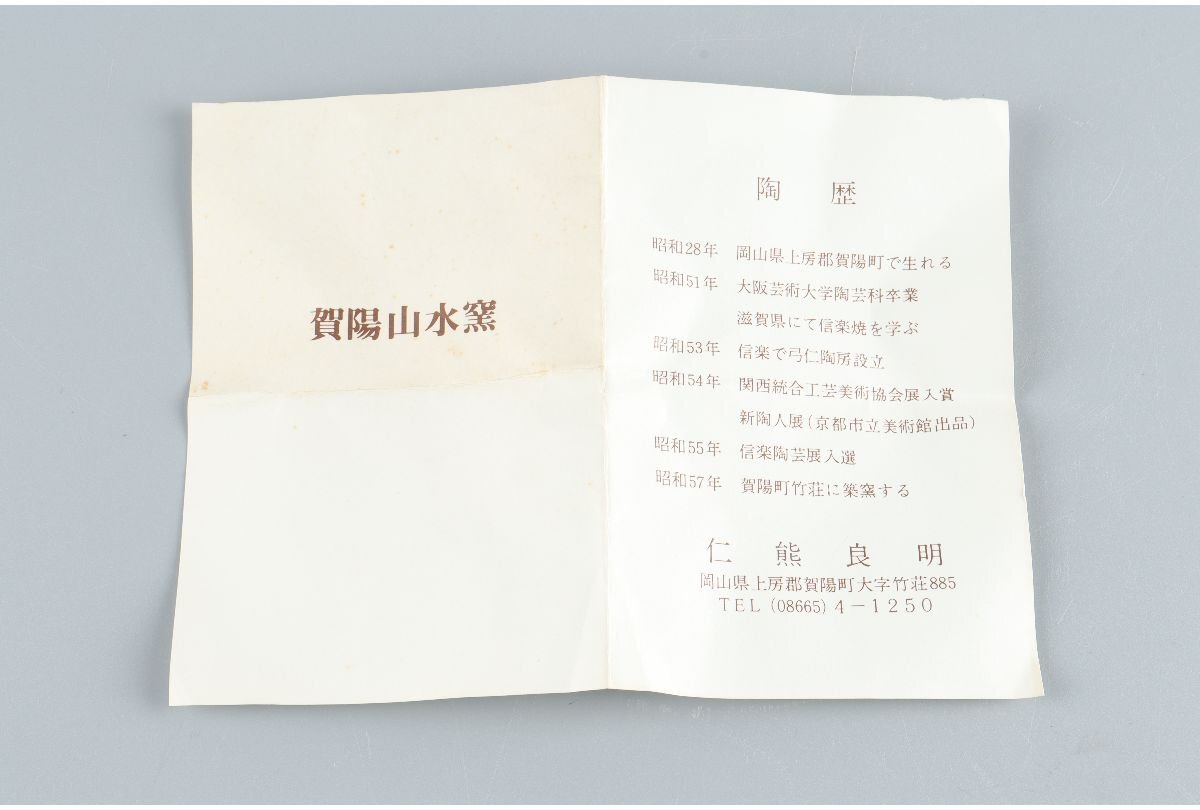 賀陽山水窯
陶 歴
昭和28年 岡山県上房郡賀陽町で生れる
昭和51年 大阪芸術大学陶芸科卒業
滋賀県にて信楽焼を学ぶ
昭和53年 信楽で弓仁陶房設立
昭和54年 関西統合工芸美術協会展入賞
新陶人展(京都市立美術館出品)
昭和55年 信楽陶芸展入選
昭和57年 賀陽町竹荘に築窯する
仁熊良明
岡山県上房郡賀陽町大字竹荘885
TEL (08665) 4-1250